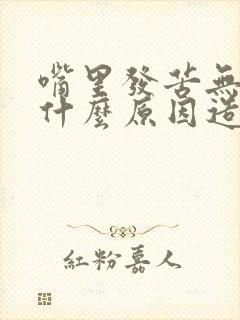 嘴里發苦無
什麼原因造
紅粉嘉人